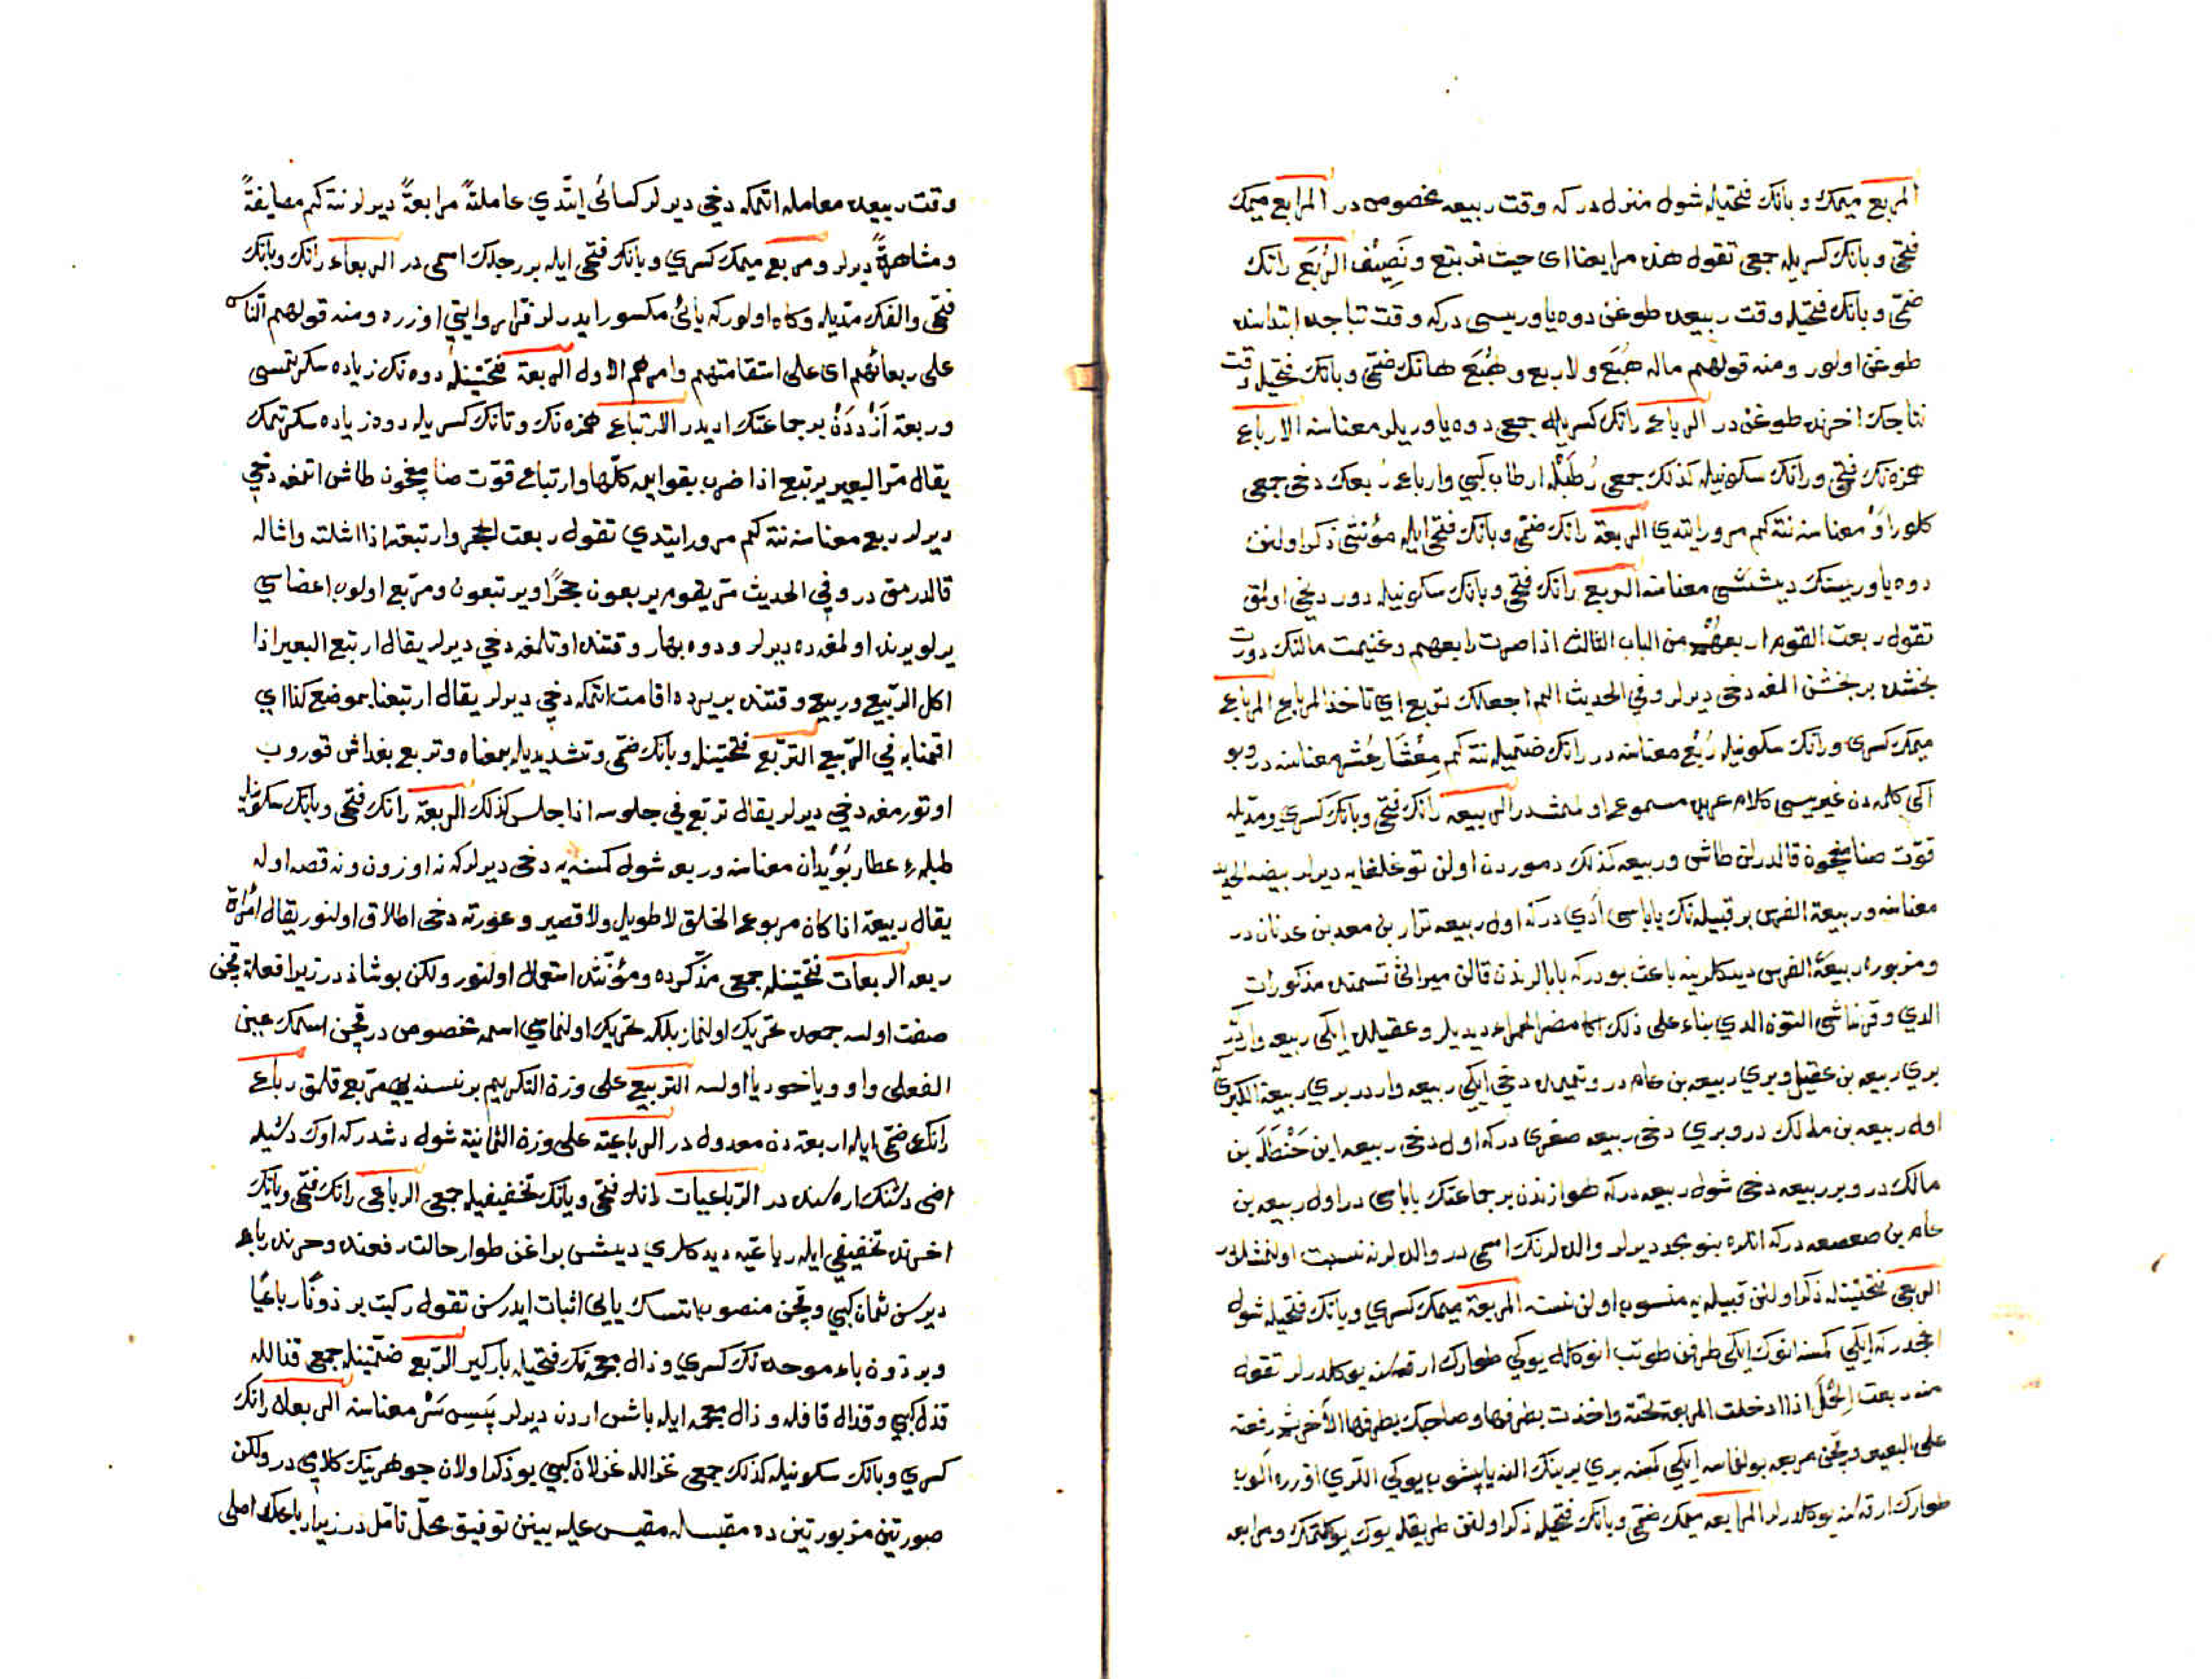 المربع ميمك و بانك فتحيله شول منزل در كه وقت ربيعه مخصوص در المرابع ميمك
فتحى و بانك كسريله جمعى تقول هذه مرابعنا اى حيث نرتبع و نصيّف الرُبَع رانك
ضمّى و بانك فتحيله وقت ربيعده طوغن دوه ياوريسى در كه وقت نتاجك ابتداسنده
طوغن اولور ومنه قولهم ماله هُبَع ولا ربع و هُبَع هانك ضمّى و بانك فتحيله وقت
نتاجك اخرنده طوغن در الرباع رانك كسريله جمعى دوه ياوريلر معناسنه الارباع
همزه نك فتحى و رانك سكونيله كذلك جمعى رُطَبله ارطاب كبى وارباع رُبعك دخى جمعى
كلور اوْ معناسنه نته كم مرور ايتدى الربعة رانك ضمّى و بانك فتحى ايله مؤنثى ذكر اولنن
دوه ياوريسنك ديشيسى معناسنه الربع رانك فتحى و بانك سكونيله دورد نجى اولمق
تقول ربعت القوم اربعهُم من الباب الثالث اذا صرت رابعهم وغنيمت مالنك دورت
بخشده بر بخشن المغه دخى ديرلر وفي الحديث الم اجعلك تربع اي تاخذ المرباع المرباع
ميمك كسرى و رانك سكونيله رُبُع معناسنه در رانك ضمّيله نته كم مِعْشار عُشر معناسنه در وبو
ايكى كلمه دن غيريسى كلام عربده مسموع اولمشدر الربيعه رانك فتحى و بانك كسري ومدّيله
قوّت صنا يجون قالدرلن طاش وربيعه كذلك دموردن اولن توغلغايه ديرلر بيضه الحديد
معناسنه وربيعة الفرس بر قبيله نك باباسى ادي در كه اول ربيعه نزار بن معد بن عدنان در
ومزبوره ربيعة الفرس ديدكلرينه باعث بودر كه بابالرندن قالن ميراثى قسمتده مذكور ات
الدي وقرنداشى التون الدي بناء على ذلك اكا مضر الحمراء ديديلر وعقيلده ايكى ربيعه واردر
بري ربيعه بن عقيل وبري ربيعه بن عامر در وتميمده دخى ايكى ربيعه وار در بري ربيعة الكبرى
اول ربيعه بن مالك در وبري دخى ربيعه صغرى در كه اول دخى ربيعه ابن حَنْظَلَه بن
مالك در وبر ربيعه دخى شول ربيعه در كه هوازندن بر جماعتك باباسى در اول ربيعه بن
عامر بن صعصعه در كه انلره بنو مجد ديرلر والده لرنك اسمى در والده لرنه نسبت اولنمشلردر
الربعى فتحتينله ذكر اولنن قبيله يه منسوب اولن نسنه المربعة ميمك كسري و بانك فتحيله شول
اغجدر كه ايكى كمسنه انوك ايكى طرفن طوتب انوكله يوكي طوارك ارقه سنه يوكلدرلر تقول
منه ربعت الحِمْل اذا ادخلت المربعة تحته واخذت بطرفها وصاحبك بطرفها الآخر ثم رفعته
على البعير وقچن مربعه بولنماسه ايكى كمسنه بري برينك النه ياپيشوب يوكي اللري اوزره الوب
طوارك ارقه سنه يوكلدرلر المرابعه ميمك ضمّى و بانك فتحيله ذكر اولنن طريقله يوك يوكلتمك ومرابعه
وقت ربيعده معامله اتمكه دخى ديرلر كسائى ايتدي عاملته مرابعةً ديرلر نته كم مصايفةً
ومشاهرةً ديرلر ومربع ميمك كسري و بانك فتحى ايله بر رجلك اسمى در الربعاء رانك و بانك
فتحى والفك مدّيله وكاه اولور كه يائى مكسور ايدرلر فرّا روايتى اوزره ومنه قولهم الناس
على ربعاتهم اى على استقامتهم وامرهم الاول الربعة فتحتينله دوه نك زياده سكرتمسى
وربعة اَزْدَدَنْ بر جماعتك اديدر الارتباع همزه نك و تانك كسريله دوه زياده سكرتمك
يقال مرّ البعير يرتبع اذا ضرب بقوايمه كلّها وارتباع قوّت صنا يجون طاش اتمغه دخى
ديرلر ربع معناسنه نته كم مرور ايتدي تقول ربعت الحجر وارتبعته اذا اشلته واشاله
قالدرمق در وفي الحديث مرّ بقوم يربعون حجرًا ويرتبعون ومربّع اولوب اعضاسي
يرلو يرنده اولمغه ده ديرلر ودوه بهار وقتنده اوتلمغه دخى ديرلر يقال ارتبع البعير اذا
اكل الربيع وربيع وقتنده بر يرده اقامت اتمكه دخى ديرلر يقال ارتبعنا بموضع كذا اي
اقمنا به في الرّبيع التربّع فتحتينله و بانك ضمّى وتشديديله بمعناه وتربع بغداش قوروب
اوتورمغه دخى ديرلر يقال تربّع في جلوسه اذا جلس كذلك الربعة رانك فتحى و بانك سكونيله
طبلهء عطار بُويدان معناسنه وربعه شول كمسنه يه دخى ديرلر كه نه اوزون ونه قصه اوله
يقال ربيعة اذا كان مربوع الخلق لا طويل ولا قصير وعورته دخى اطلاق اولنور يقال امراة
ربعه الربعات فتحتينله جمعى مذكّرده ومؤنثده استعمال اولنور ولكن بو شاذ در زيرا فعلة قچن
صفت اولسه جمعده تحريك اولنماز بلكه تحريك اولنماسي اسمه مخصوص در قچن اسمك عينى
الفعلى واو ويا خود يا اولسه التربيع على وزن التكريم بر نسنه يى مربّع قلمق رباع
رانك ضمّى ايله اربعة دن معدول در الرباعية على وزن الثمانية شول دشدر كه اوك دشيله
اضى دشنك اره سنده در الرّباعيات رانك فتحى ويانك تخفيفيله جمعى الرباعى رانك فتحى ويانك
اخرنده تخفيفى ايله رباعيه ديدكلري ديشن براغن طوار حالت رفعنده وجرنده رباع
ديرسن ثمان كبى وقچن منصوب اتسك يايى اثبات ايدرسن تقول ركبت برذونًا رباعيًا
وبرذون باء موحده نك كسري وذال معجمه نك فتحيله باركير الرّبع ضمّتينله جمعى قذالله
قذل كبي وقذال قافله وذال معجمه ايله باشن اردن ديرلر پَسِ سَرْ معناسنه الربعان رانك
كسري و بانك سكونيله كذلك جمعى غزالله غزلان كبي بو ذكر اولان جوهرينك كلامى در ولكن
صورتين مزبورتين ده مقيسله مقيس عليه بيننن توفيق محلّ تامّل در زيرا رباعك اصلى